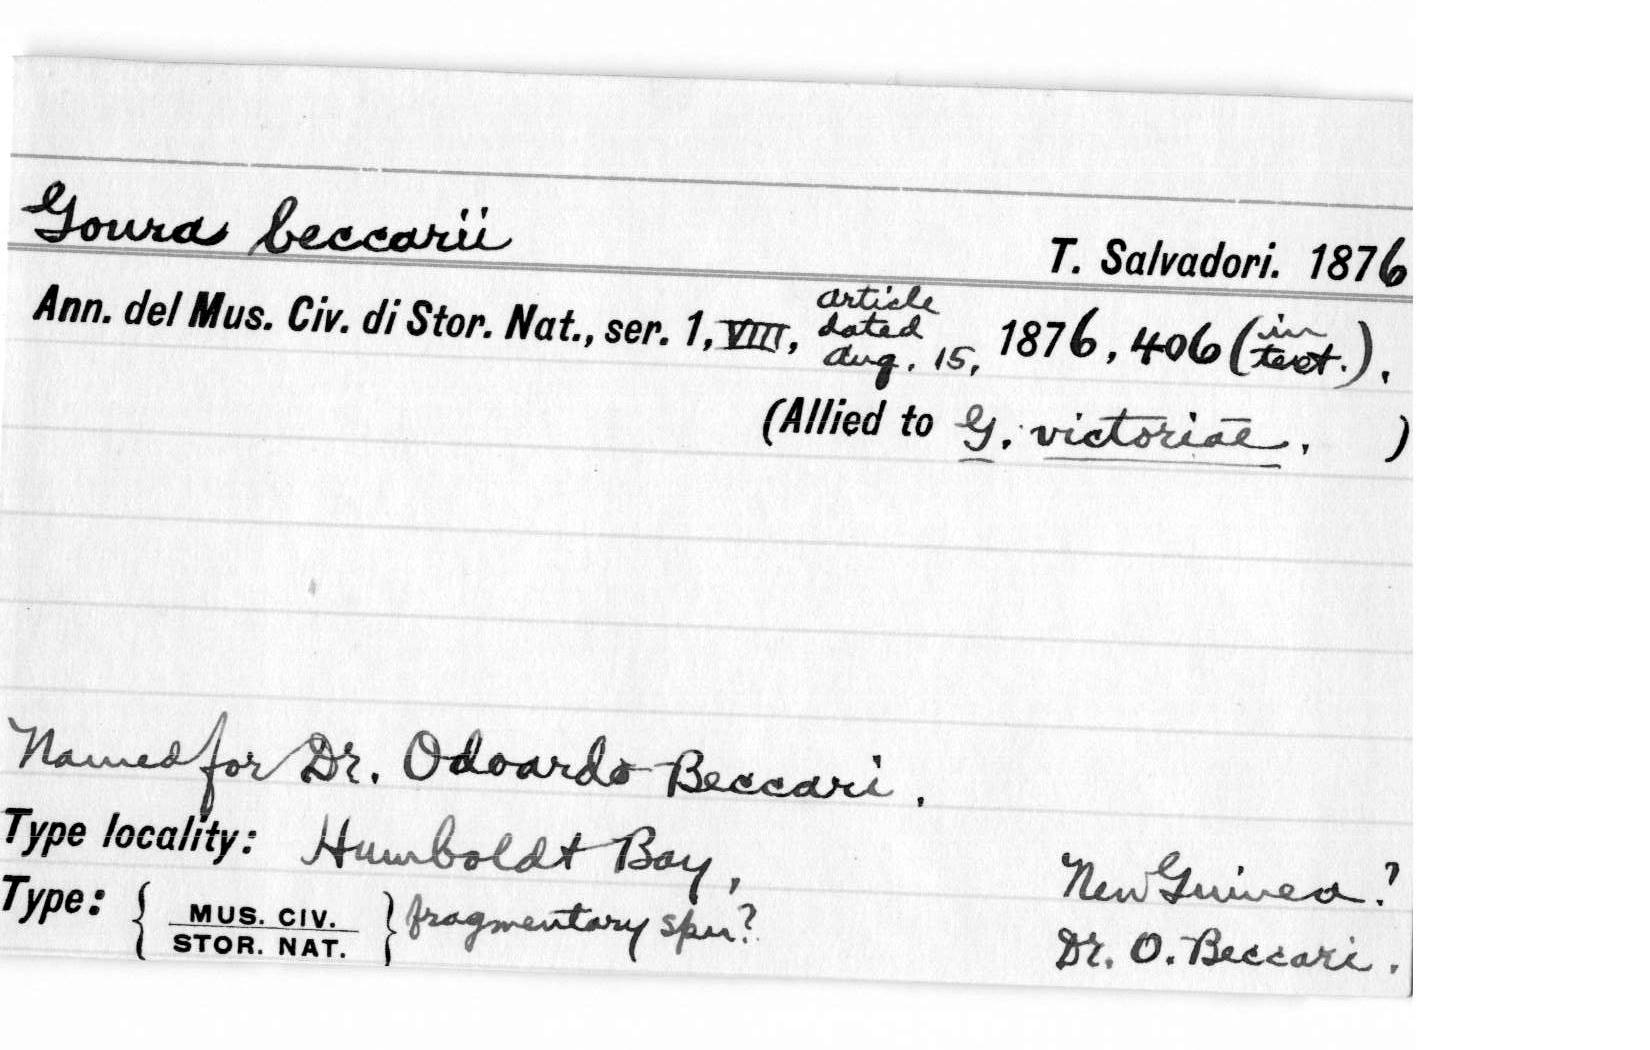 Goura beccarii
T. Salvadori. 1876
Ann. del Mus. Civ. di Stor. Nat., ser. 1, VIII, article dated Aug. 15, 1876, 406 (in text.).
(Allied to G. victoriae. )
Named for Dr. Odoardo Beccari.
Type locality: Humboldt Bay, New Guinea.?
Type: { MUS. CIV. STOR. NAT. } fragmentary spm? Dr. O. Beccari.